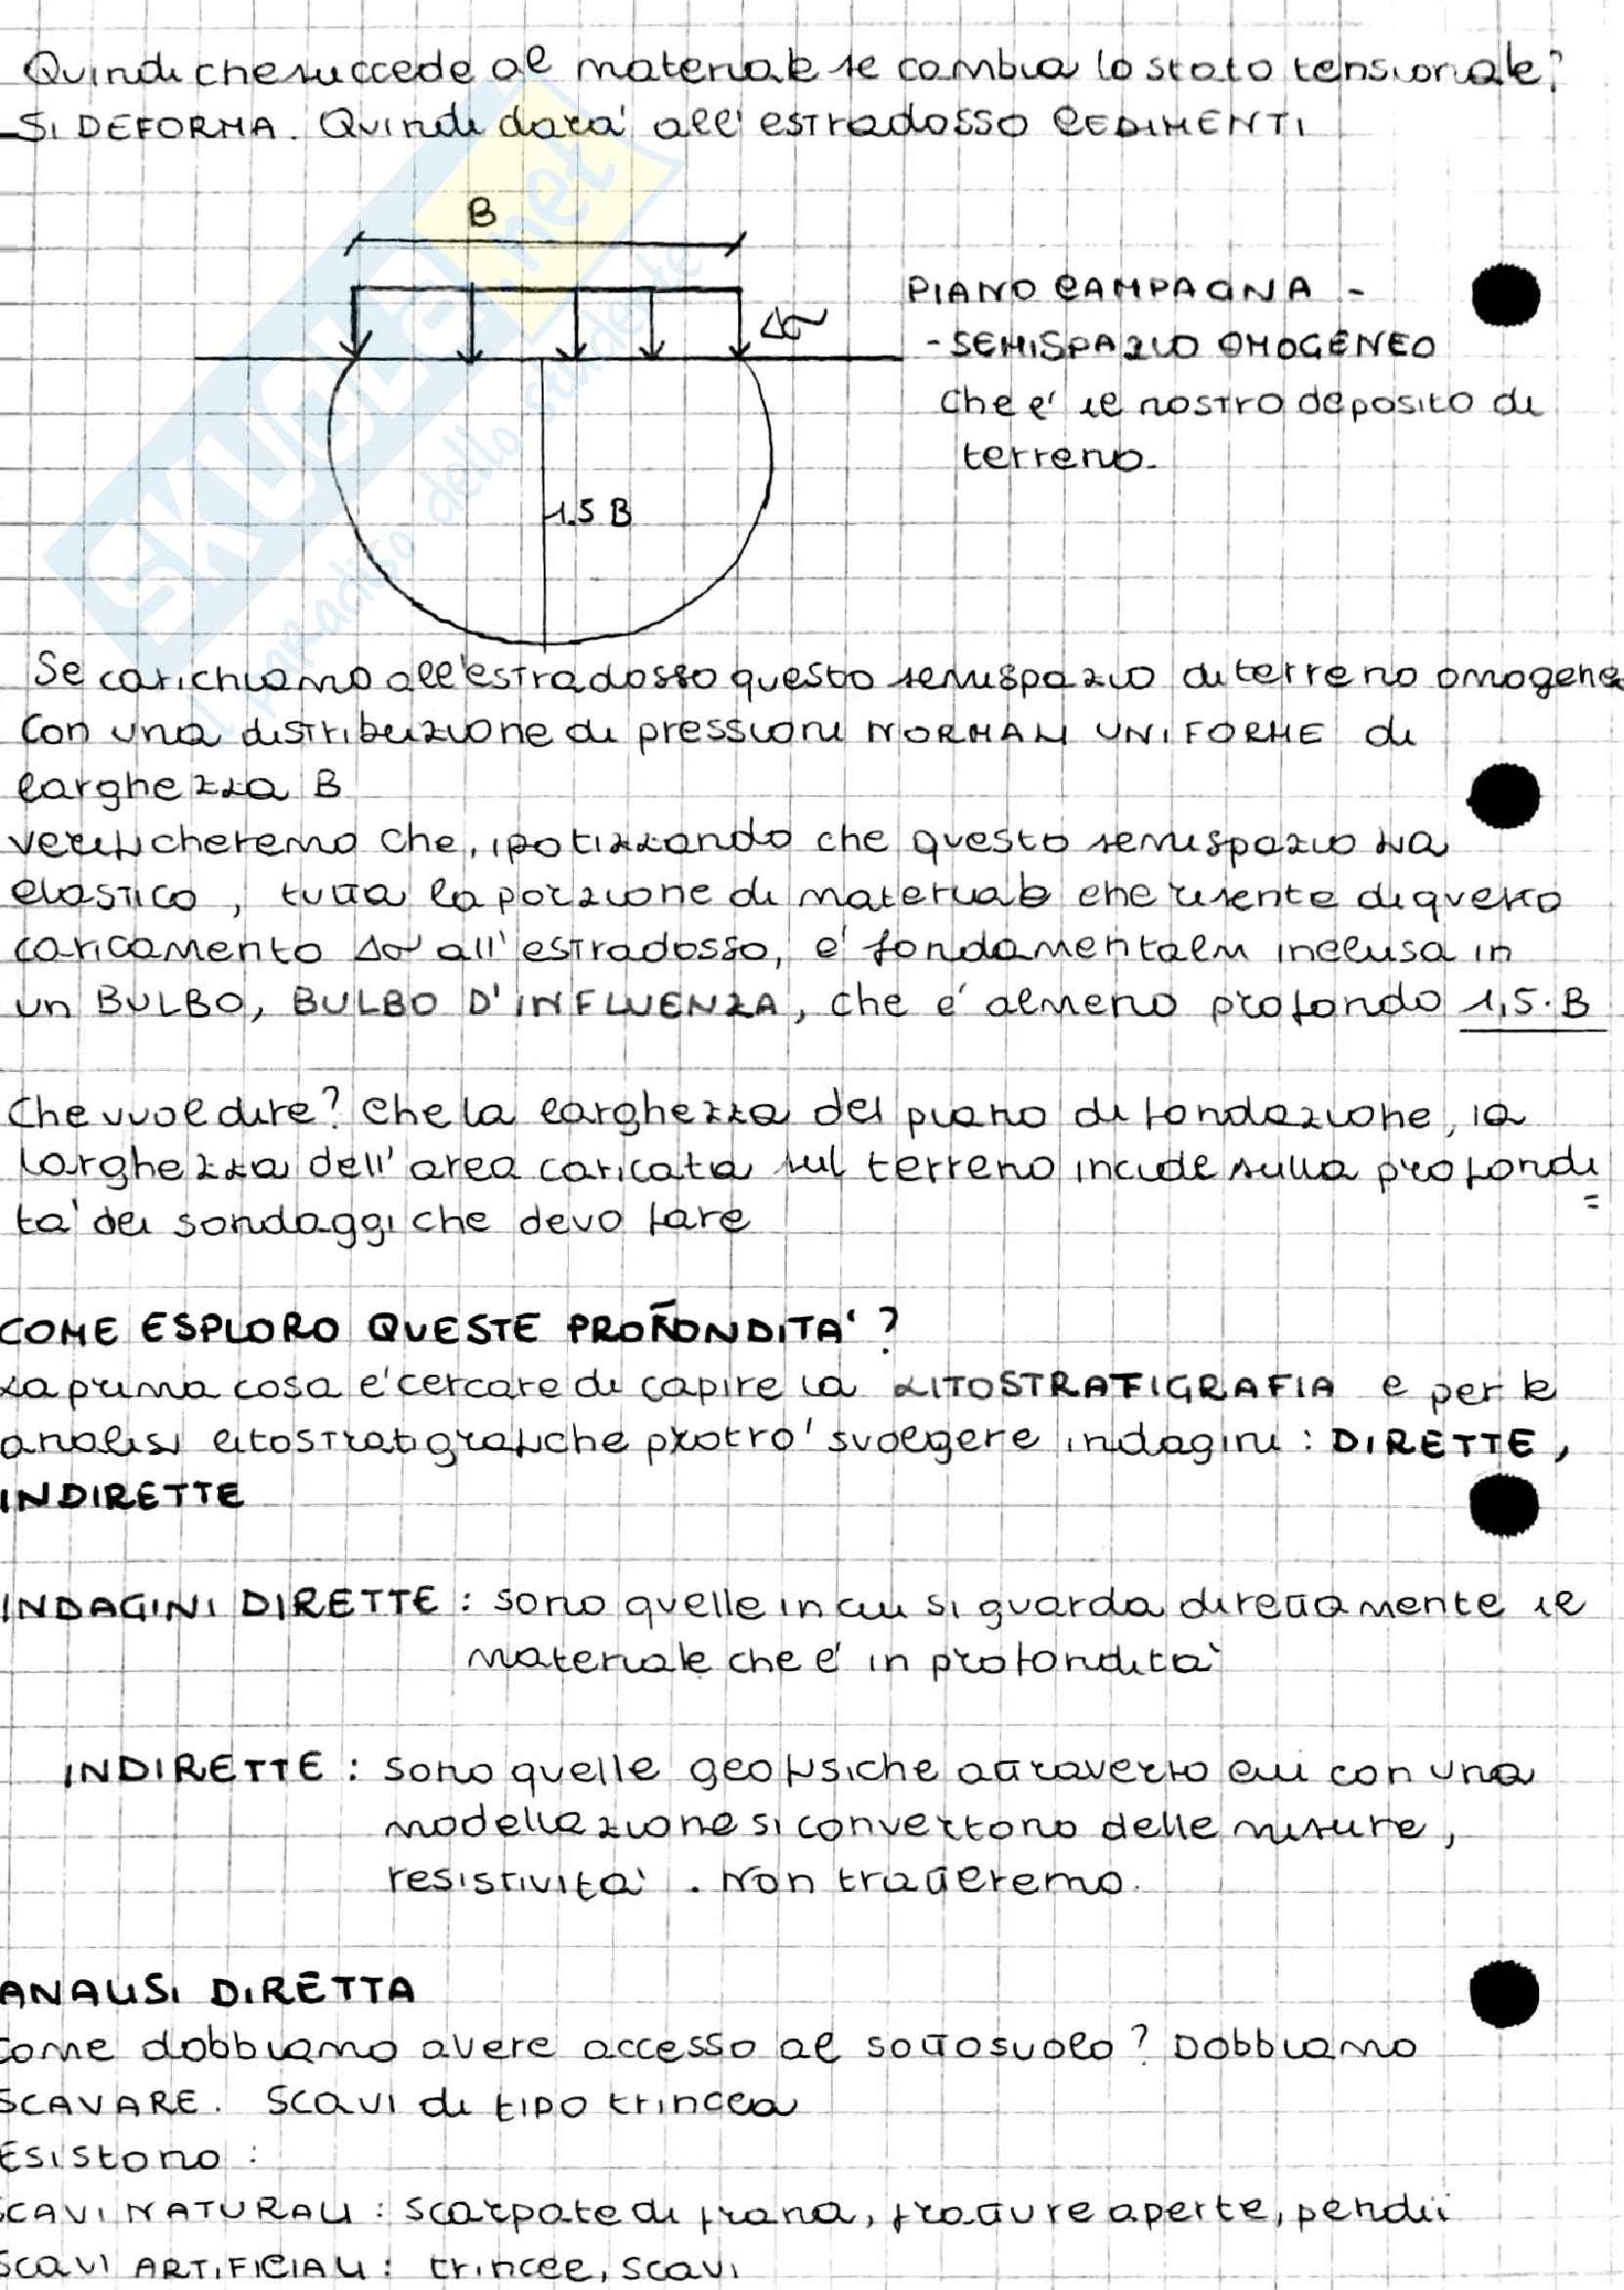 Quindi che succede al materiale se cambia lo stato tensionale?
SI DEFORMA. Quindi darà all'estradosso CEDIMENTI
B
Δσ
PIANO CAMPAGNA -
- SEMISPAZIO OMOGENEO
che è il nostro deposito di
terreno.
1.5 B
Se carichiamo all'estradosso questo semispazio di terreno omogeneo
con una distribuzione di pressioni NORMALI UNIFORME di
larghezza B
verificheremo che, ipotizzando che questo semispazio sia
elastico, tutta la porzione di materiale che risente di questo
caricamento Δσ all'estradosso, è fondamentalm inclusa in
un BULBO, BULBO D'INFLUENZA, che è almeno profondo 1,5·B
Che vuol dire? Che la larghezza del piano di fondazione, la
larghezza dell'area caricata sul terreno incide sulla profondi
tà dei sondaggi che devo fare
COME ESPLORO QUESTE PROFONDITA'?
La prima cosa è cercare di capire la LITOSTRATIGRAFIA e per le
analisi litostratigrafiche potrò svolgere indagini: DIRETTE,
INDIRETTE
INDAGINI DIRETTE: sono quelle in cui si guarda direttamente il
materiale che è in profondità
INDIRETTE: sono quelle geofisiche attraverso cui con una
modellazione si convertono delle misure,
resistività. Non tratteremo.
ANALISI DIRETTA
Come dobbiamo avere accesso al sottosuolo? Dobbiamo
SCAVARE. Scavi di tipo trincea
Esistono:
SCAVI NATURALI: scarpate di frana, fratture aperte, pendii
SCAVI ARTIFICIALI: trincee, scavi
SKUOLA.net
il paradiso dello studente